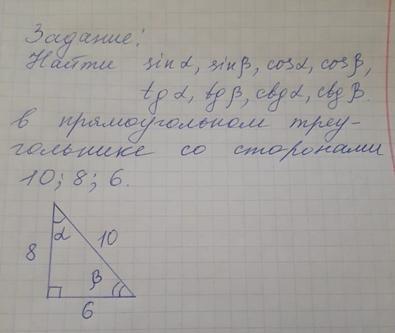 Задание:
Найти sin α, sin β, cos α, cos β,
tg α, tg β, ctg α, ctg β.
в прямоугольном треу-
гольнике со сторонами
10; 8; 6.
α
10
8
β
6